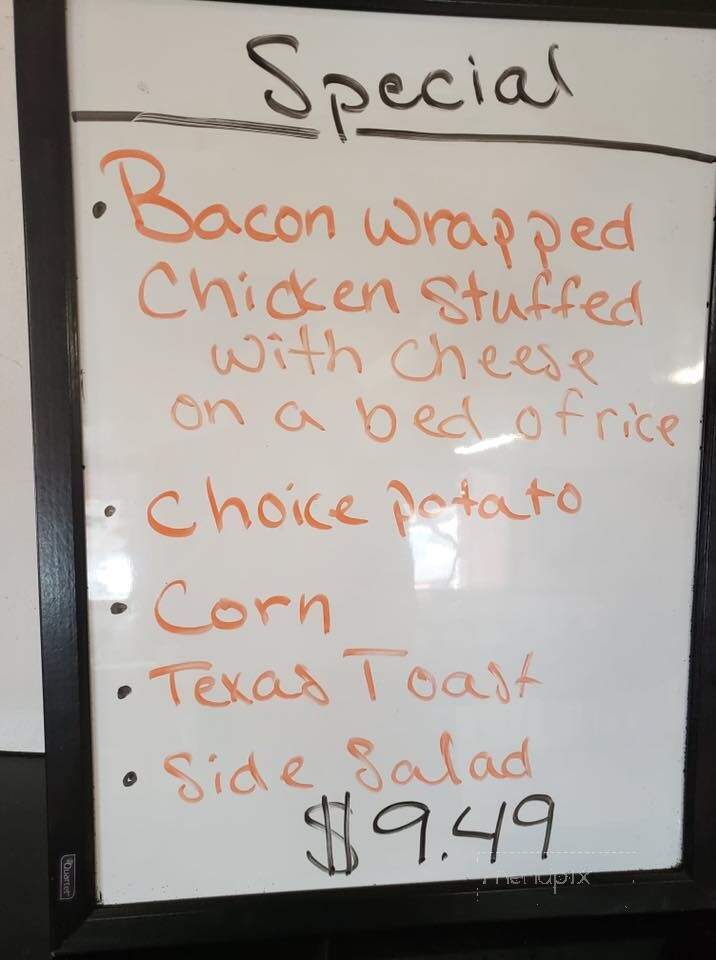 Special
• Bacon wrapped
Chicken stuffed
with cheese
on a bed of rice
• Choice potato
• Corn
• Texas Toast
• Side Salad
$9.49
Quartet
menupix